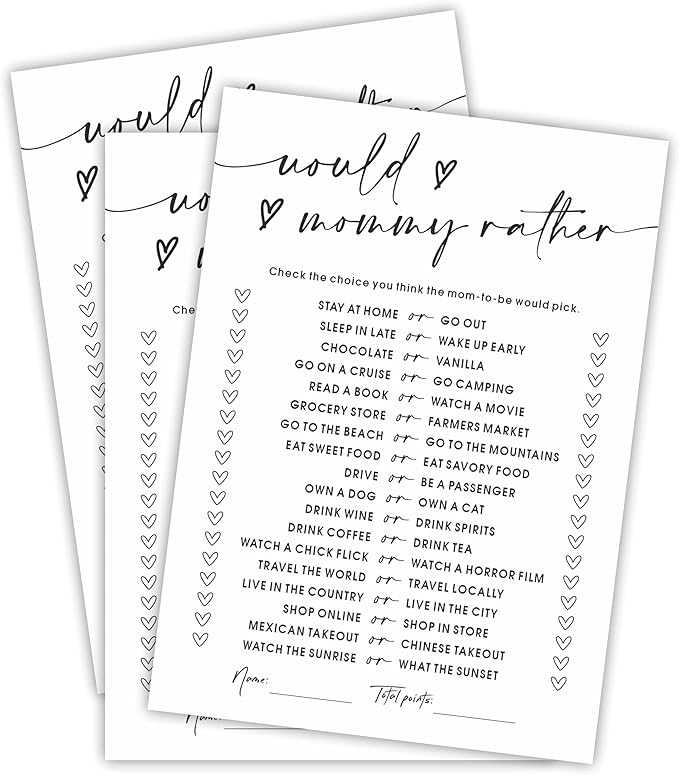 would
mommy rather
Check the choice you think the mom-to-be would pick.
STAY AT HOME or GO OUT
SLEEP IN LATE or WAKE UP EARLY
CHOCOLATE or VANILLA
GO ON A CRUISE or GO CAMPING
READ A BOOK or WATCH A MOVIE
GROCERY STORE or FARMERS MARKET
GO TO THE BEACH or GO TO THE MOUNTAINS
EAT SWEET FOOD or EAT SAVORY FOOD
DRIVE or BE A PASSENGER
OWN A DOG or OWN A CAT
DRINK WINE or DRINK SPIRITS
DRINK COFFEE or DRINK TEA
WATCH A CHICK FLICK or WATCH A HORROR FILM
TRAVEL THE WORLD or TRAVEL LOCALLY
LIVE IN THE COUNTRY or LIVE IN THE CITY
SHOP ONLINE or SHOP IN STORE
MEXICAN TAKEOUT or CHINESE TAKEOUT
WATCH THE SUNRISE or WHAT THE SUNSET
Name: Total points:
would
Name: